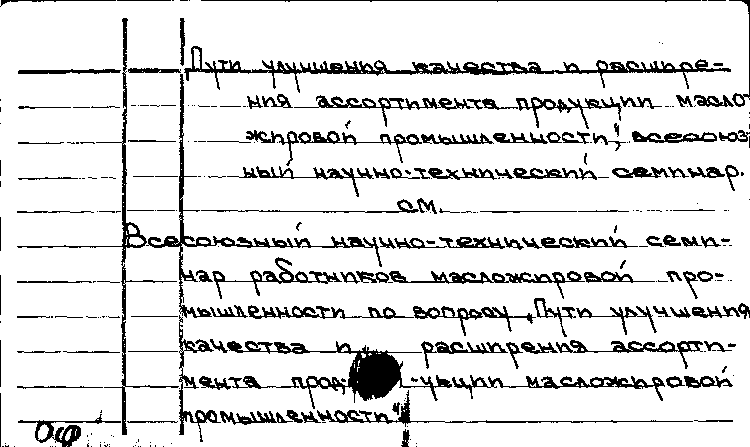 „Пути улучшения качества и расшире-
ния ассортимента продукции масло-
жировой промышленности", всесоюз-
ный научно-технический семинар.
см.
Всесоюзный научно-технический семи-
нар работников масложировой про-
мышленности по вопросу „Пути улучшения
качества и расширения ассорти-
мента прод-укции масложировой
промышленности"